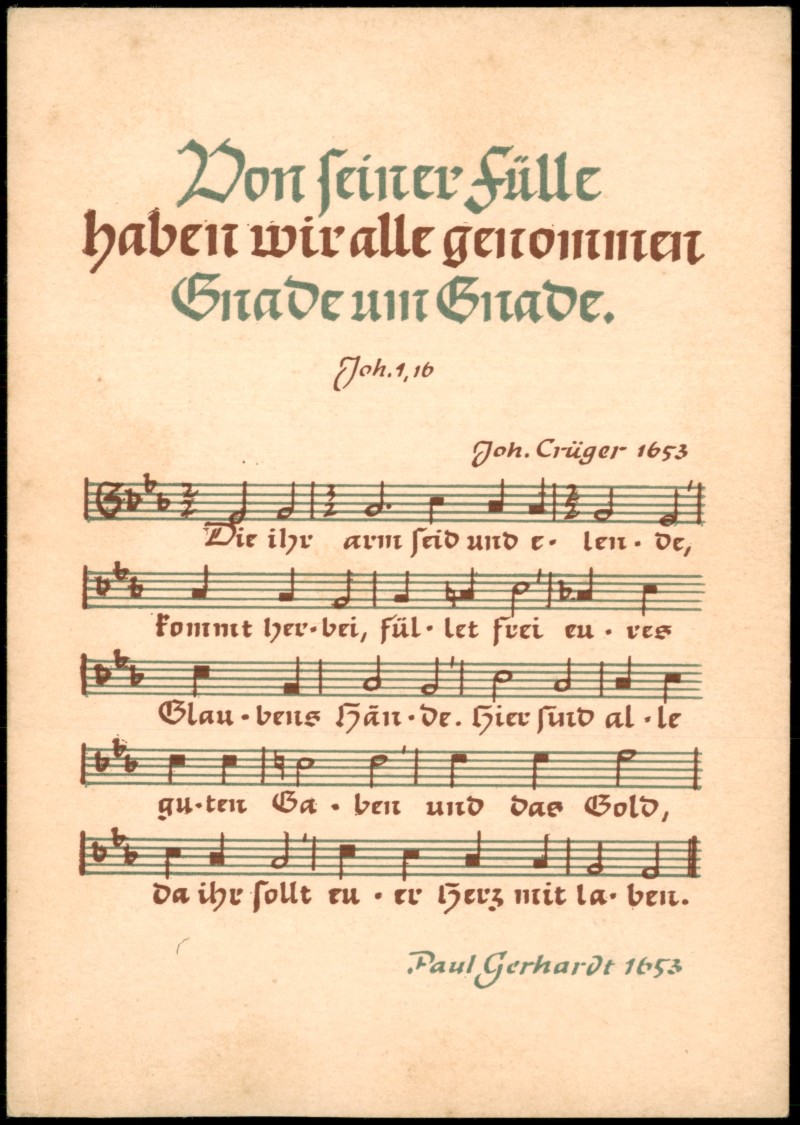 Von seiner Fülle
haben wir alle genommen
Gnade um Gnade.
Joh. 1, 16
Joh. Crüger 1653
Die ihr arm seid und e- len- de,
kommt her-bei, fül- let frei eu- res
Glau-bens Hän-de. Hier sind al-le
gu-ten Ga- ben und das Gold,
da ihr sollt eu- er Herz mit la- ben.
Paul Gerhardt 1653